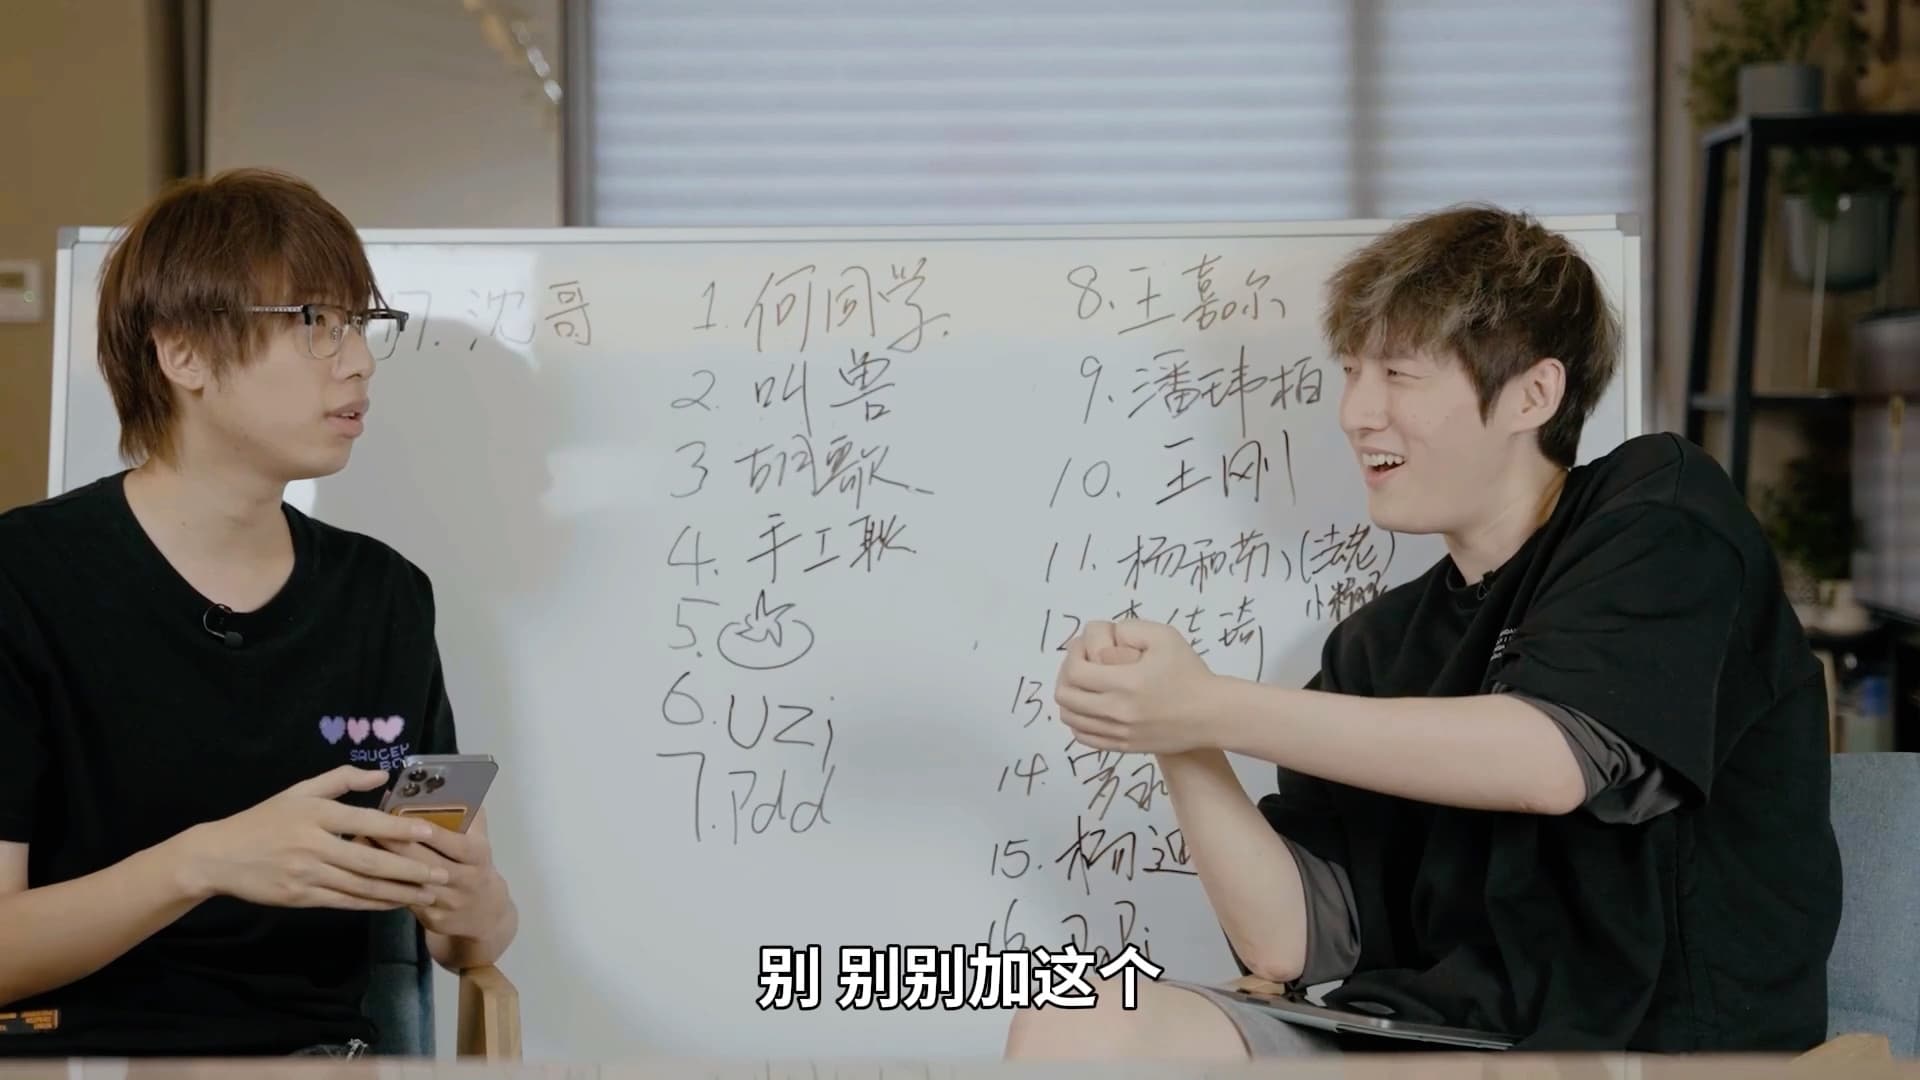 17. 沈哥
1. 何同学.
2. 叫兽
3 胡歌
4. 手工耿
5.
6. Uzi
7. Pdd
8. 王嘉尔
9. 潘玮柏
10. 王刚
11. 杨和苏(法老)
小精灵
12 李佳琦
13.
14. 罗永
15. 杨迪
16.
SAUCEY
BO
别 别别加这个